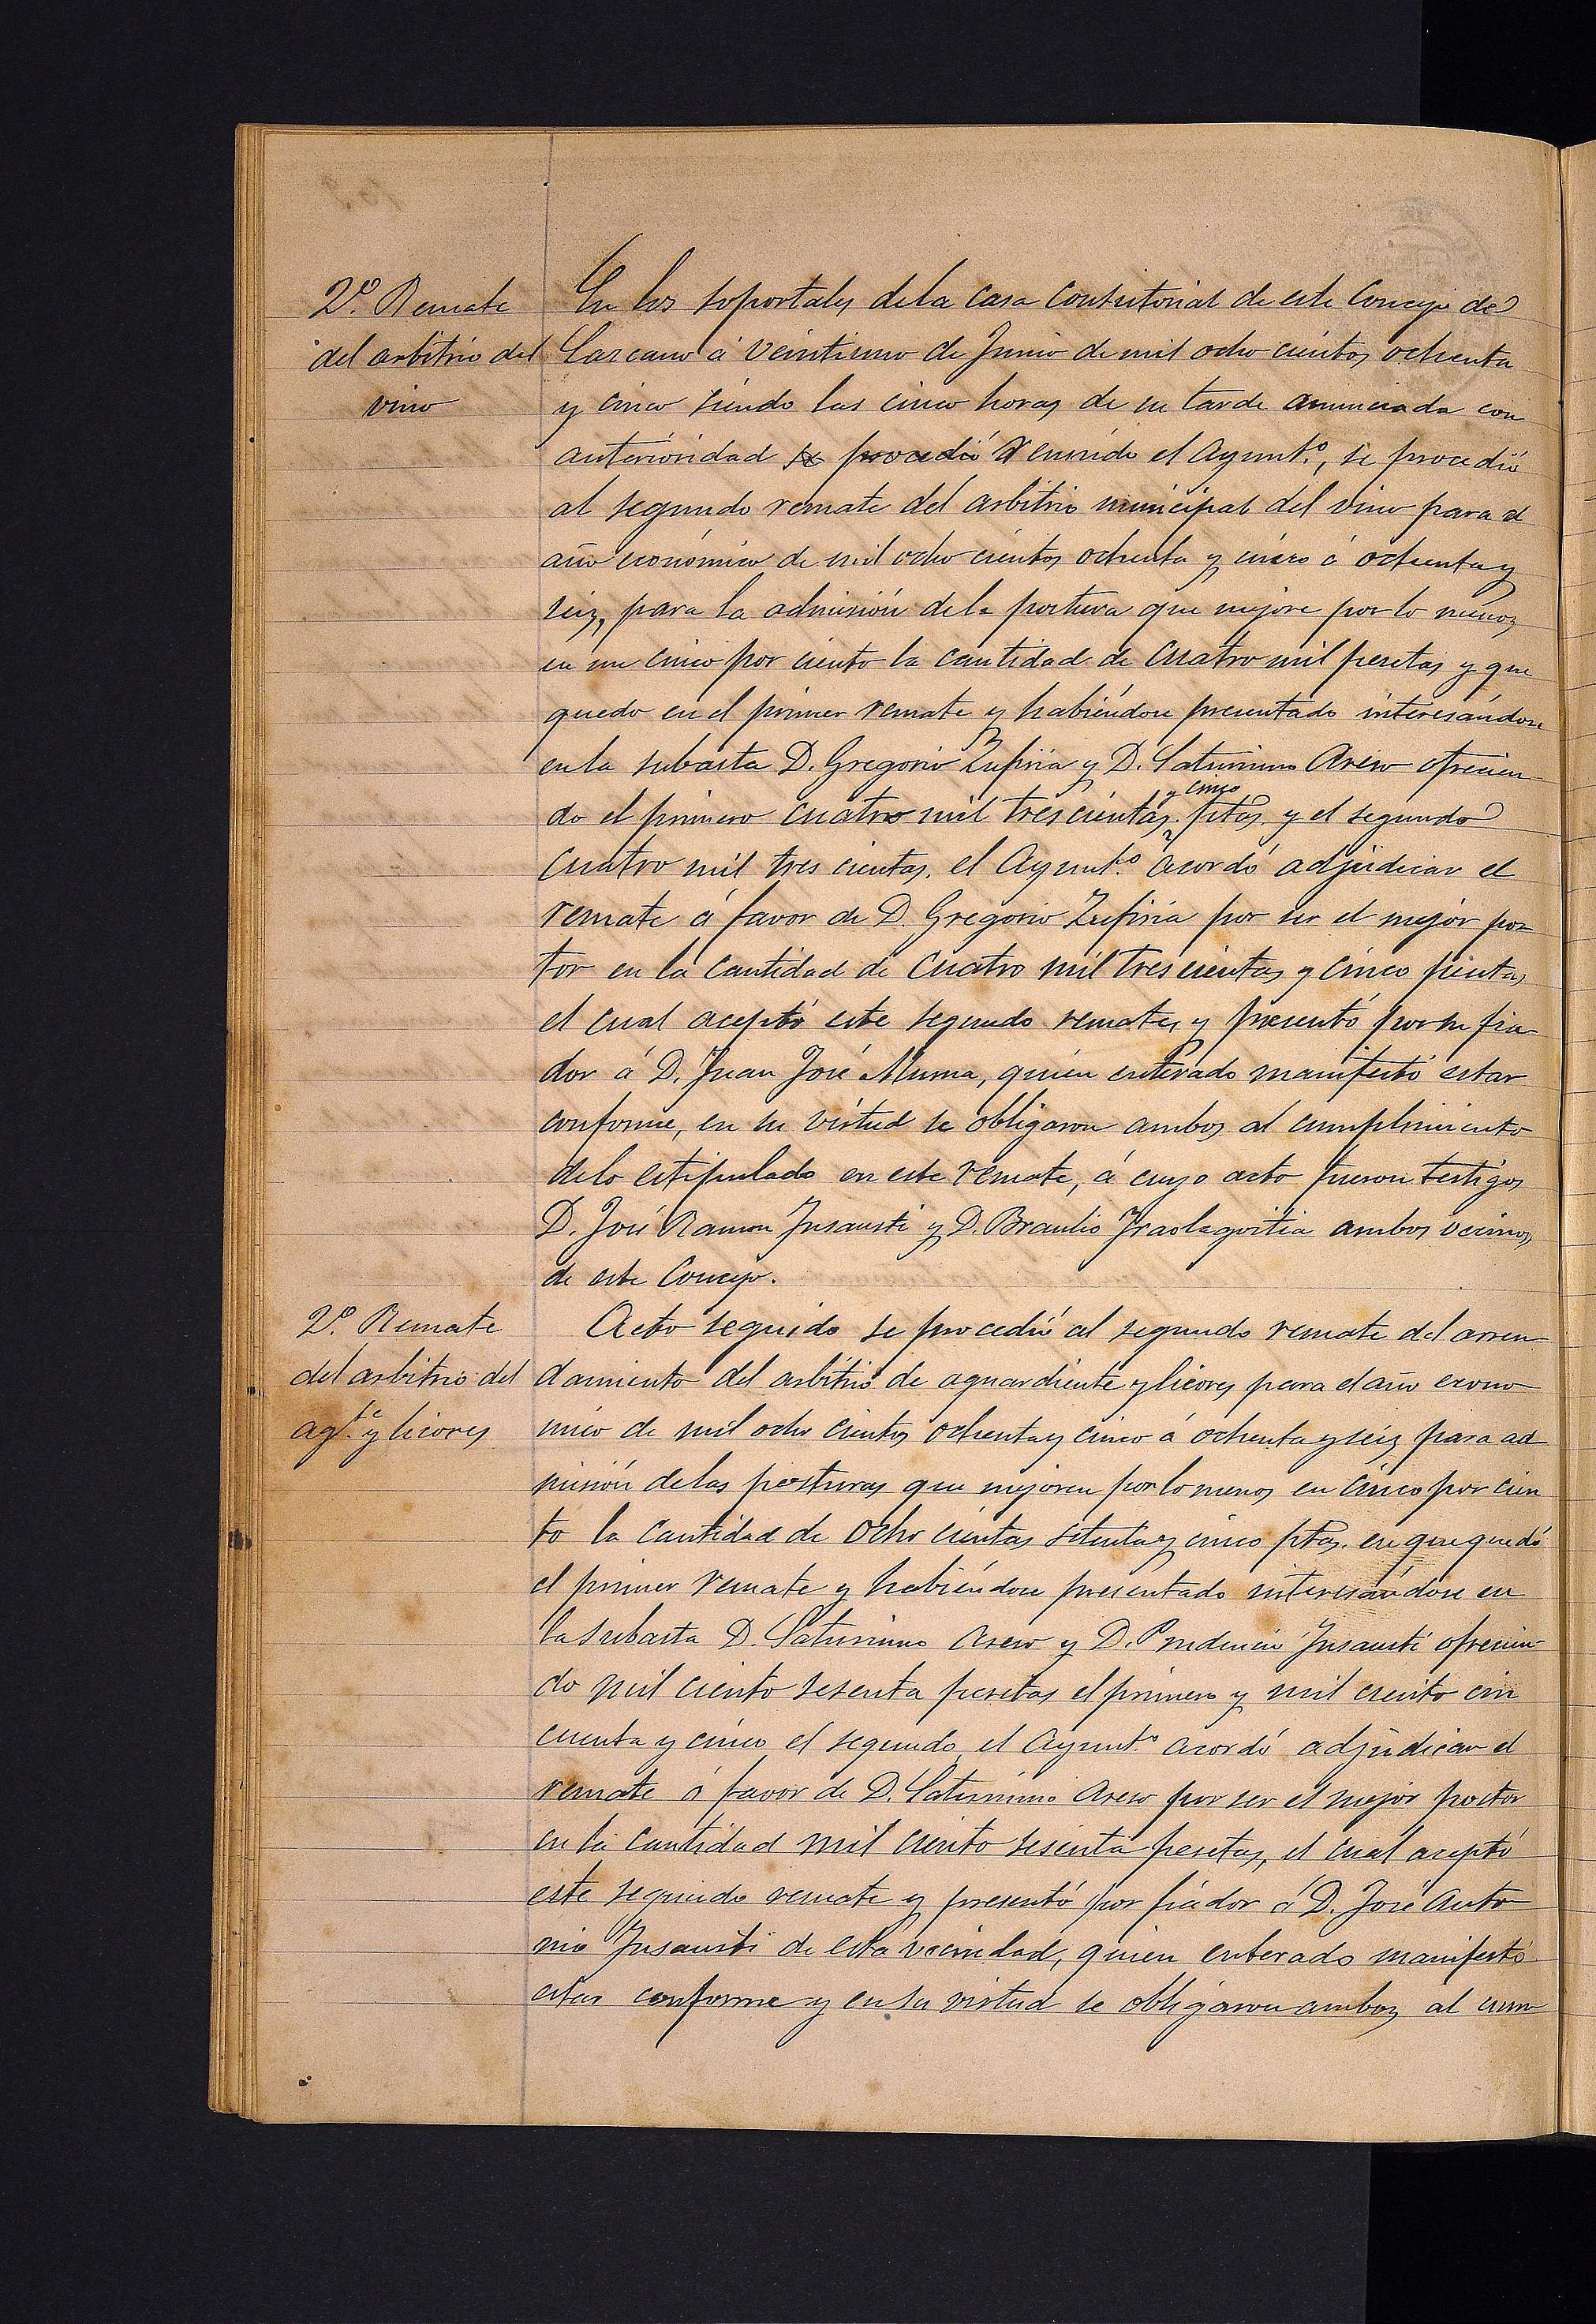 2º. Remate
del arbitrio del
vino
En los soportales dela casa Consistorial de este Concejo de
Lazcano á veintiuno de Junio de mil ocho cientos ochenta
y cinco siendo las cinco horas de su tarde anunciada con
anterioridad se procedió reunido el Ayunt.º, se procedió
al segundo remate del arbitrio municipal del vino para el
año económico de mil ocho cientos ochenta y cinco á ochenta y
seis, para la admisión dela postura que mejore por lo menos
en un cinco por ciento la cantidad de cuatro mil pesetas y que
quedo en el primer remate y habiéndose presentado interesándose
en la subasta D. Gregorio Zufiria y D. Saturnino Areso ofrecien
y cinco
do el primero cuatro mil tres cientas ptas. y el segundo
cuatro mil tres cientas. el Ayunt.º acordó adjudicar el
remate á favor de D. Gregorio Zufiria por ser el mejor pos
tor en la cantidad de cuatro mil tres cientas y cinco pesetas
el cual aceptó este segundo remate, y presentó por su fia-
dor á D. Juan José Munoa, quien enterado manifestó estar
conforme, en su virtud se obligaron ambos al cumplimiento
delo estipulado en este remate, á cuyo acto fueron testigos
D. José Ramon Insausti y D. Braulio Iraolagoitia ambos vecinos
de este Concejo.
2º. Remate
del arbitrio del
agte. y licores
Acto seguido se procedió al segundo remate del arren
damiento del arbitrio de aguardiente y licores para el año econo
mico de mil ocho cientos ochenta y cinco á ochenta y seis para ad
misión delas posturas que mejoren por lo menos en cinco por cien
to la cantidad de Ocho cientas setenta y cinco ptas. en que quedó
el primer remate y habiéndose presentado interesándose en
la subasta D. Saturnino Areso y D. Prudencio Insausti ofrecien-
do mil ciento sesenta pesetas el primero y mil ciento cin
cuenta y cinco el segundo el Ayunt.º acordó adjudicar el
remate á favor de D. Saturnino Areso por ser el mejor postor
en la cantidad mil ciento sesenta pesetas, el cual aceptó
este segundo remate y presentó por fiador á D. José Anto
nio Insausti de esta vecindad, quien enterado manifestó
estar conforme y en su virtud se obligaron ambos al cum